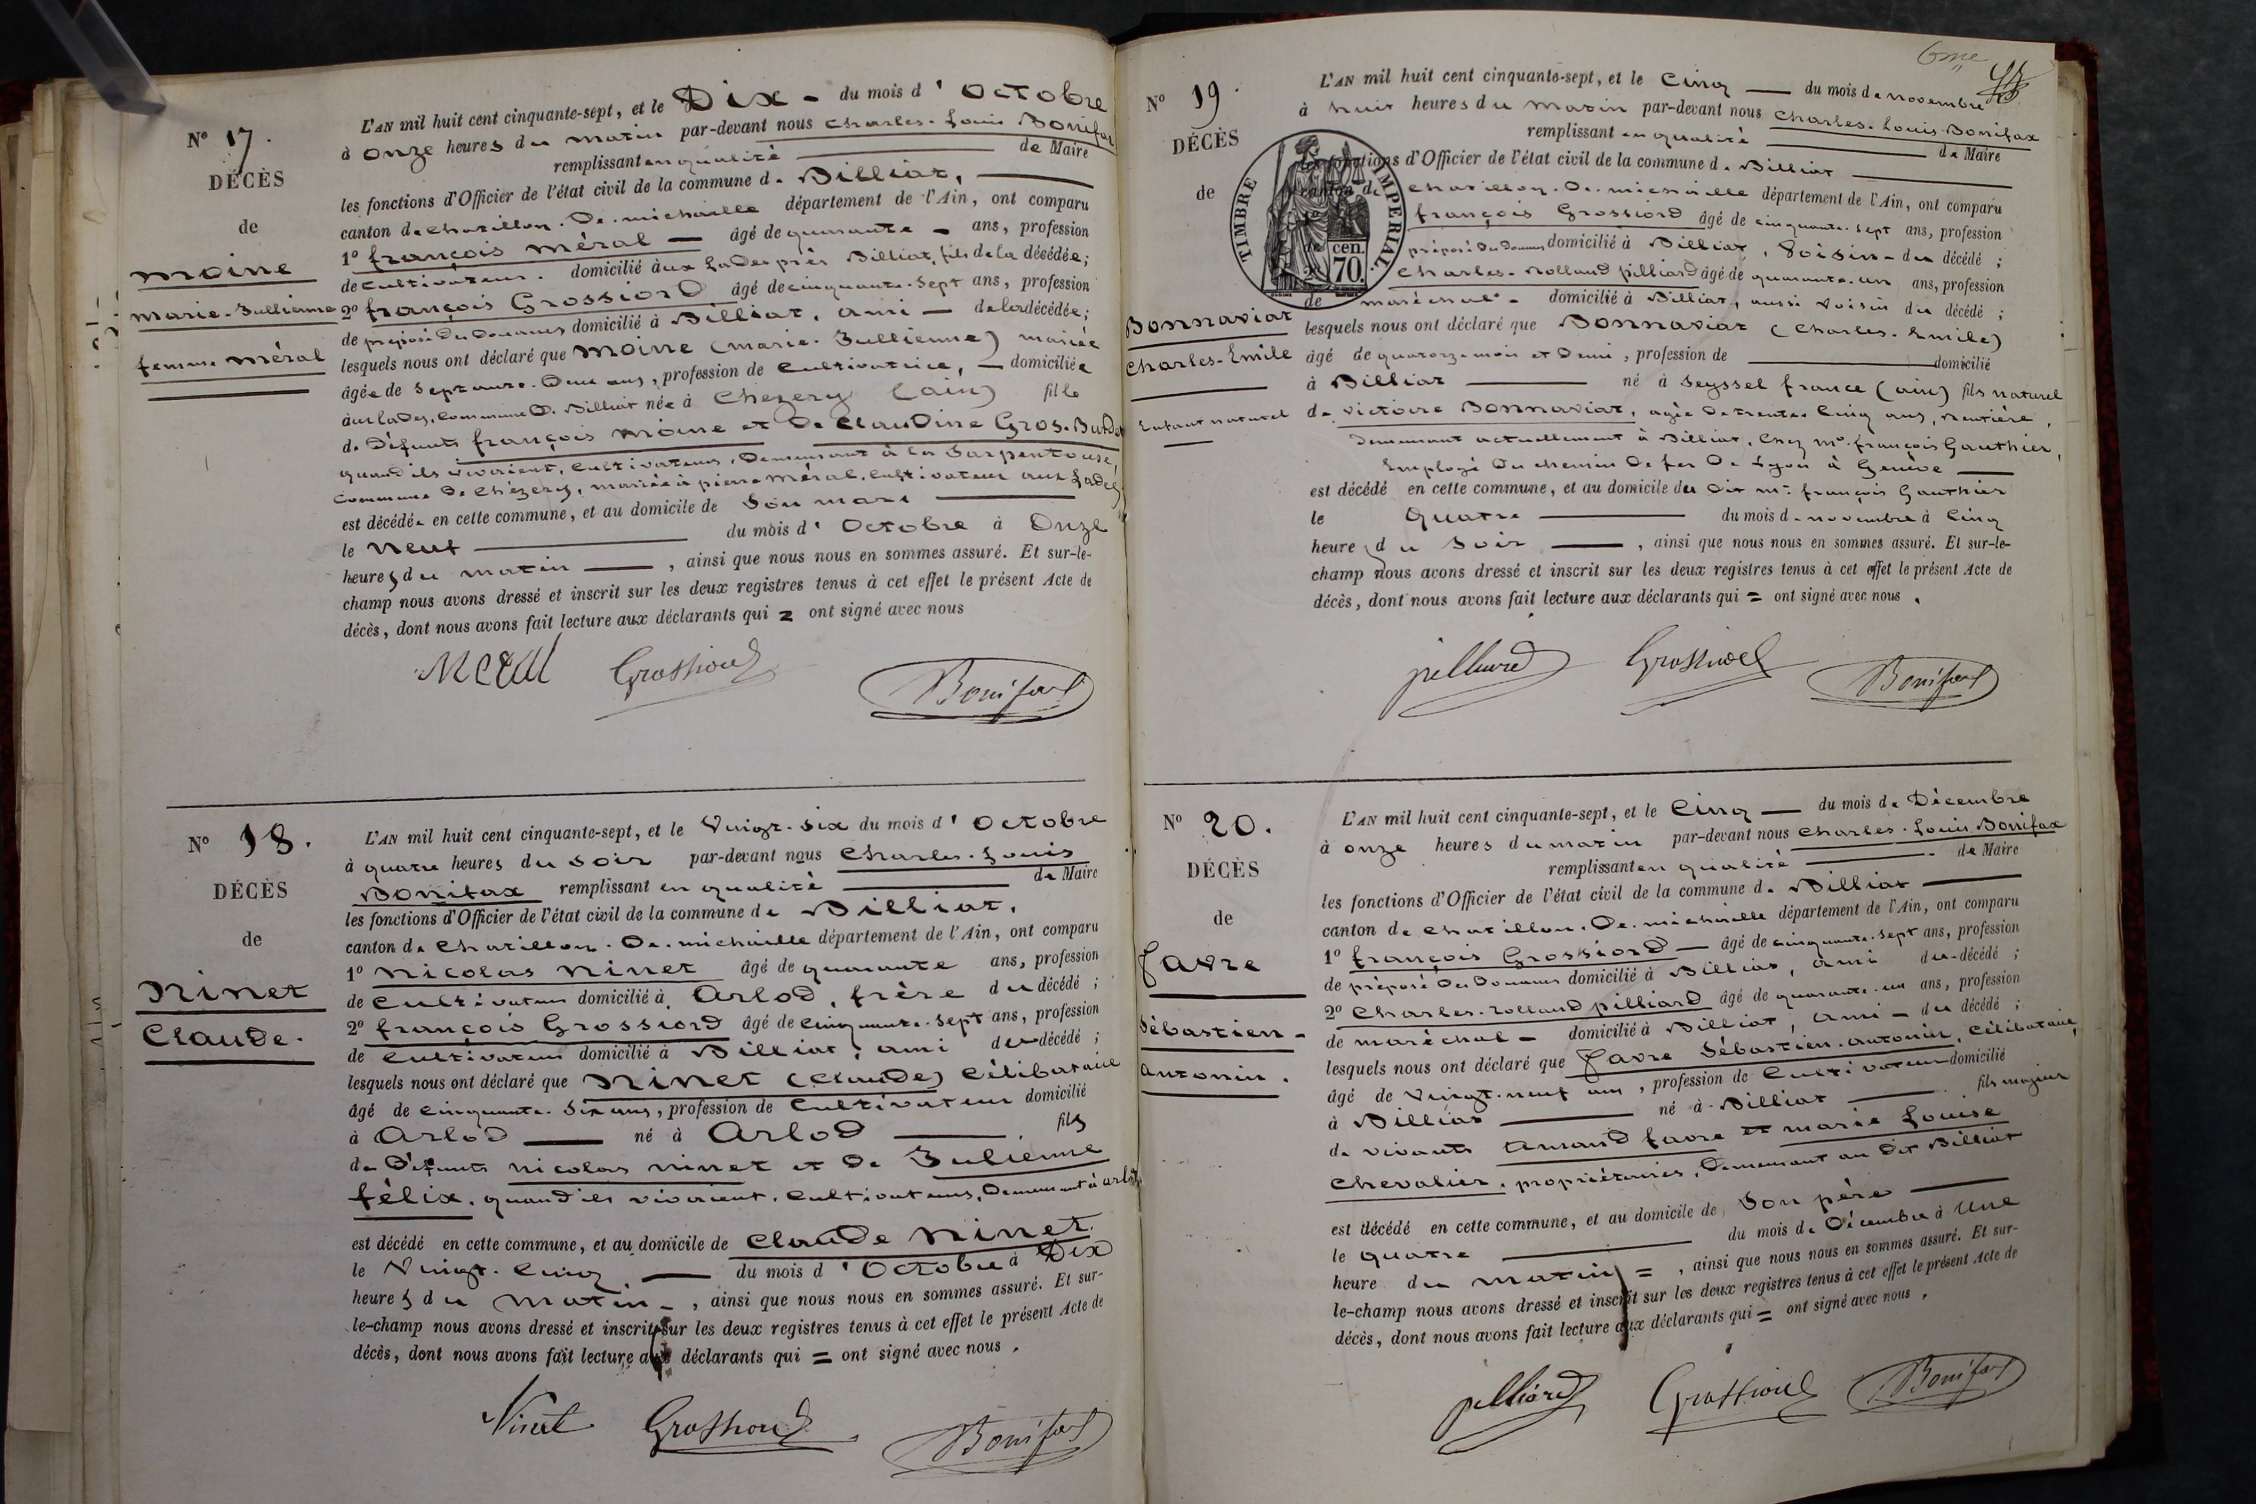 N° 17.
DÉCÈS
de
Moine
Marie-Jullienne
femme Méral
L'AN mil huit cent cinquante-sept, et le Dix - du mois d'Octobre
à onze heures du matin par-devant nous Charles-Louis Bonifax
remplissant en qualité de Maire
les fonctions d'Officier de l'état civil de la commune de Billiat,
canton de Chatillon-De-Michaille département de l'Ain, ont comparu
1° françois Méral — âgé de quarante - ans, profession
de cultivateur. domicilié aux Lades près Billiat, fils de la décédée;
2° françois Grossiord âgé de cinquante-sept ans, profession
de préposé Des Douanes domicilié à Billiat, ami — de la décédée;
lesquels nous ont déclaré que Moine (Marie-Jullienne) mariée
âgée de septante-Deux ans, profession de cultivatrice, — domiciliée
aux Lades, commune De Billiat née à Chezery (ain) fille
de Défunts françois Moine et De Claudine Gros-Burdet
quand ils vivaient, cultivateurs, Demeurant à la Serpentouse,
commune De Chézery, mariée à pierre Méral, cultivateur aux Lades
est décédée en cette commune, et au domicile de son mari
le neuf du mois d'Octobre à Onze
heures du matin —, ainsi que nous nous en sommes assuré. Et sur-le-
champ nous avons dressé et inscrit sur les deux registres tenus à cet effet le présent Acte de
décès, dont nous avons fait lecture aux déclarants qui = ont signé avec nous
Meral Grossiord Bonifax
N° 18.
DÉCÈS
de
Ninet
Claude.
L'AN mil huit cent cinquante-sept, et le Vingt-six du mois d'Octobre
à quatre heures du soir par-devant nous Charles-Louis
Bonifax remplissant en qualité de Maire
les fonctions d'Officier de l'état civil de la commune de Billiat,
canton de Chatillon-De-Michaille département de l'Ain, ont comparu
1° Nicolas Ninet âgé de quarante ans, profession
de cultivateur domicilié à Arlod, frère du décédé;
2° françois Grossiord âgé de cinquante-sept ans, profession
de cultivateur domicilié à Billiat, ami du décédé;
lesquels nous ont déclaré que Ninet (Claude) célibataire
âgé de cinquante-six ans, profession de cultivateur domicilié
à Arlod — né à Arlod — fils
de Défunts Nicolas Ninet et De Julienne
félix, quand ils vivaient, cultivateurs, Demeurant à arlod
est décédé en cette commune, et au domicile de Claude Ninet
le Vingt-cinq — du mois d'Octobre à Dix
heures du matin -, ainsi que nous nous en sommes assuré. Et sur-
le-champ nous avons dressé et inscrit sur les deux registres tenus à cet effet le présent Acte de
décès, dont nous avons fait lecture aux déclarants qui = ont signé avec nous.
Ninet Grossiord Bonifax
6me
N° 19.
DÉCÈS
de
Bonnaviat
Charles-Emile
Enfant naturel
TIMBRE IMPERIAL
cen. 70.
L'AN mil huit cent cinquante-sept, et le cinq — du mois de novembre
à huit heures du matin par-devant nous Charles-Louis Bonifax
remplissant en qualité de Maire
les fonctions d'Officier de l'état civil de la commune de Billiat
canton de Chatillon-De-Michaille département de l'Ain, ont comparu
françois Grossiord âgé de cinquante-sept ans, profession
préposé Des Douanes domicilié à Billiat, voisin - du décédé;
Charles-Rolland pilliard âgé de quarante-un ans, profession
de maréchal - domicilié à Billiat, aussi voisin du décédé;
lesquels nous ont déclaré que Bonnaviat (Charles-Emile)
âgé de quatorze mois et Demi, profession de domicilié
à Billiat — né à Seyssel france (ain) fils naturel
de victoire Bonnaviat, agée De trente-cinq ans, rentière,
Demeurant actuellement à Billiat, chez Mr. françois Gauthier,
Employé Du chemin De fer De Lyon à Genève —
est décédé en cette commune, et au domicile du Dit Mr. françois Gauthier
le Quatre — du mois de novembre à cinq
heures du soir —, ainsi que nous nous en sommes assuré. Et sur-le-
champ nous avons dressé et inscrit sur les deux registres tenus à cet effet le présent Acte de
décès, dont nous avons fait lecture aux déclarants qui = ont signé avec nous.
pilliard Grossiord Bonifax
N° 20.
DÉCÈS
de
Favre
Sébastien-
antonin.
L'AN mil huit cent cinquante-sept, et le cinq — du mois de Décembre
à onze heures du matin par-devant nous Charles-Louis Bonifax
remplissant en qualité de Maire
les fonctions d'Officier de l'état civil de la commune de Billiat —
canton de Chatillon-De-Michaille département de l'Ain, ont comparu
1° françois Grossiord — âgé de cinquante-sept ans, profession
de préposé Des Douanes domicilié à Billiat, ami du décédé;
2° Charles-Rolland pilliard âgé de quarante-un ans, profession
de maréchal - domicilié à Billiat, ami - du décédé;
lesquels nous ont déclaré que Favre Sébastien-antonin, célibataire,
âgé de Vingt-neuf ans, profession de cultivateur domicilié
à Billiat — né à Billiat — fils majeur
de vivants Amand favre et marie Louise
Chevalier, propriétaires, Demeurant au Dit Billiat
est décédé en cette commune, et au domicile de son père —
le quatre — du mois de Décembre à Une
heure du matin =, ainsi que nous nous en sommes assuré. Et sur-
le-champ nous avons dressé et inscrit sur les deux registres tenus à cet effet le présent Acte de
décès, dont nous avons fait lecture aux déclarants qui = ont signé avec nous.
pilliard Grossiord Bonifax